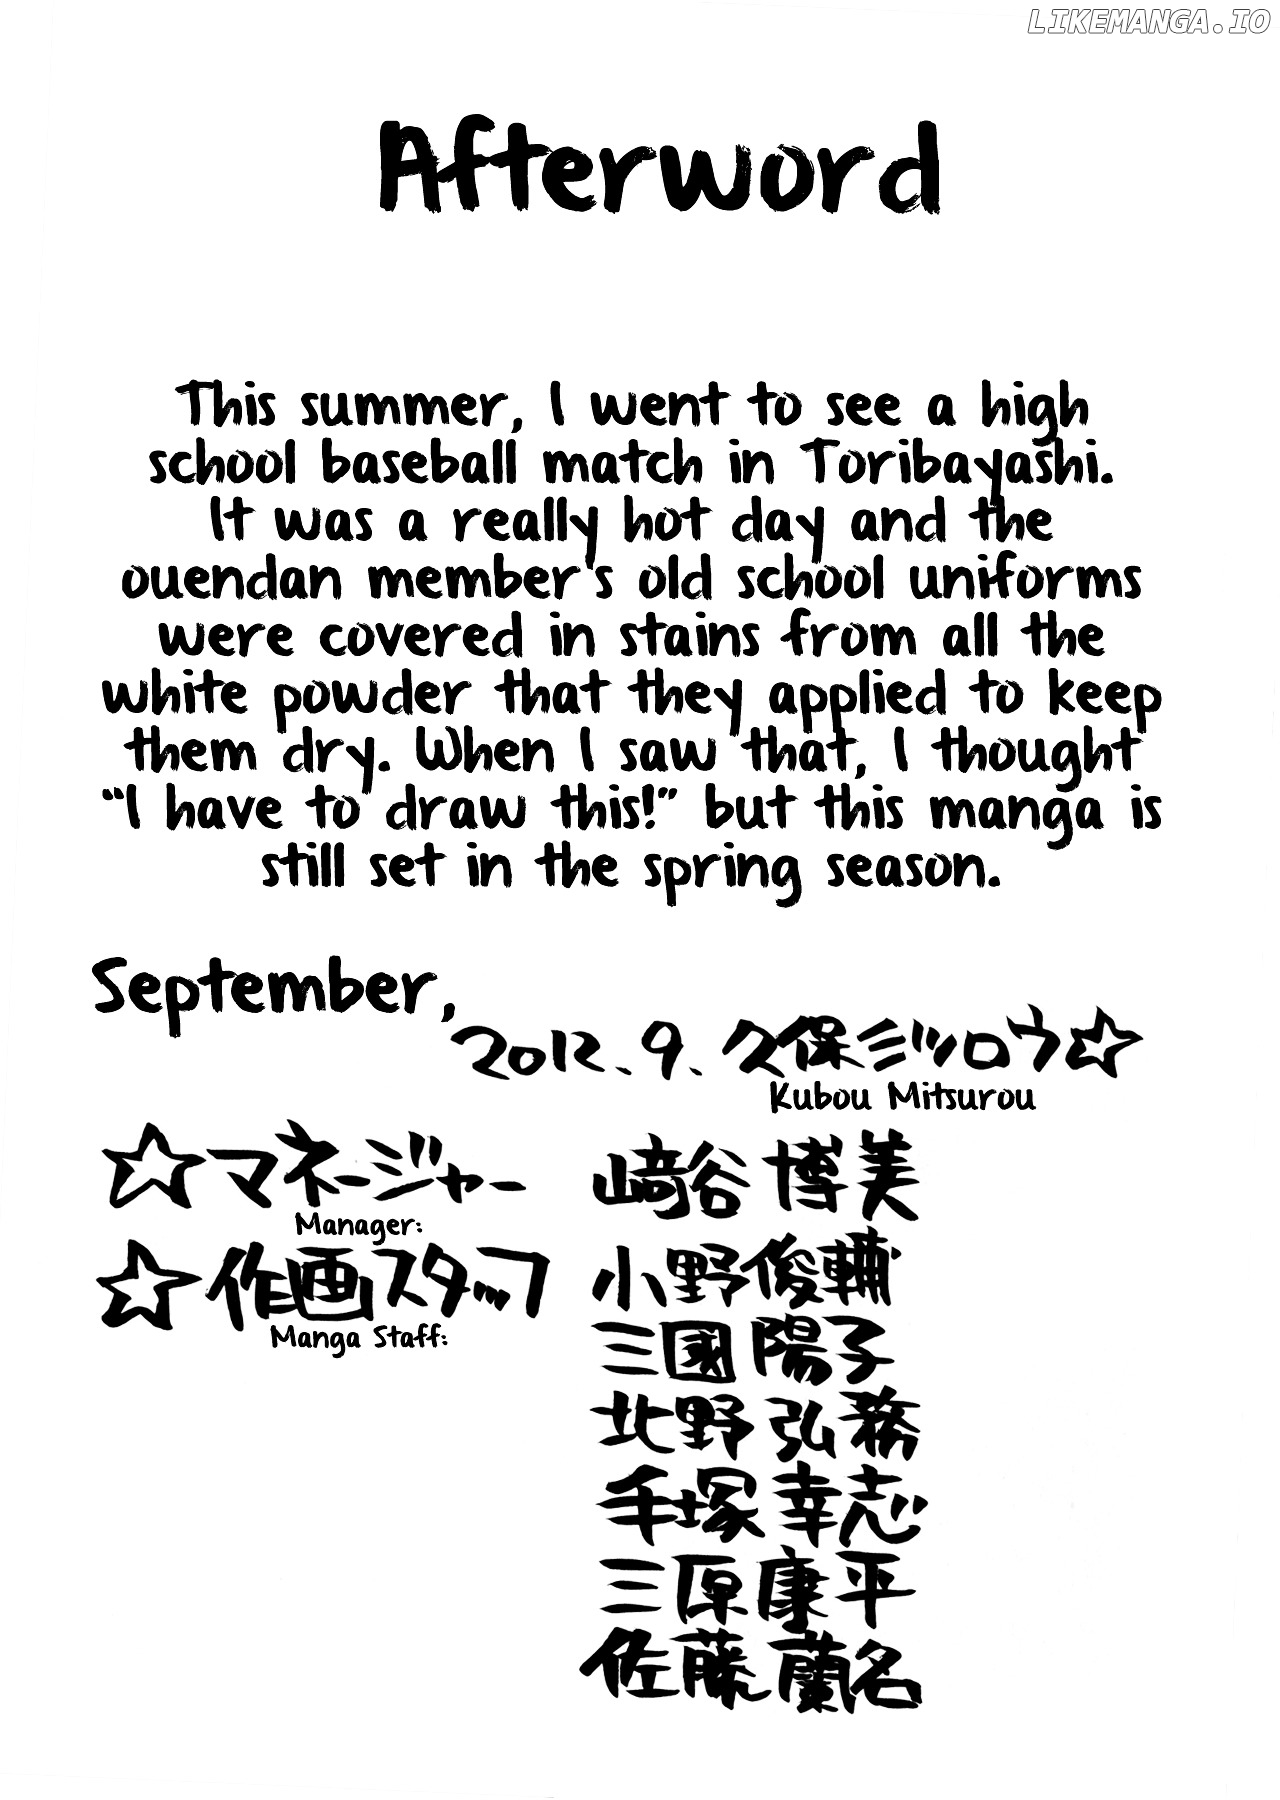 LIKEMANGA.IO
Afterword
This summer, I went to see a high
school baseball match in Toribayashi.
It was a really hot day and the
ouendan member's old school uniforms
were covered in stains from all the
white powder that they applied to keep
them dry. When I saw that, I thought
“I have to draw this!” but this manga is
still set in the spring season.
September,
2012.9. 久保ミツロウ☆
Kubou Mitsurou
☆マネージャー 﨑谷 博美
Manager:
☆作画スタッフ 小野俊輔
Manga Staff:
三國 陽子
北野 弘務
手塚 幸志
三原康平
佐藤 蘭名